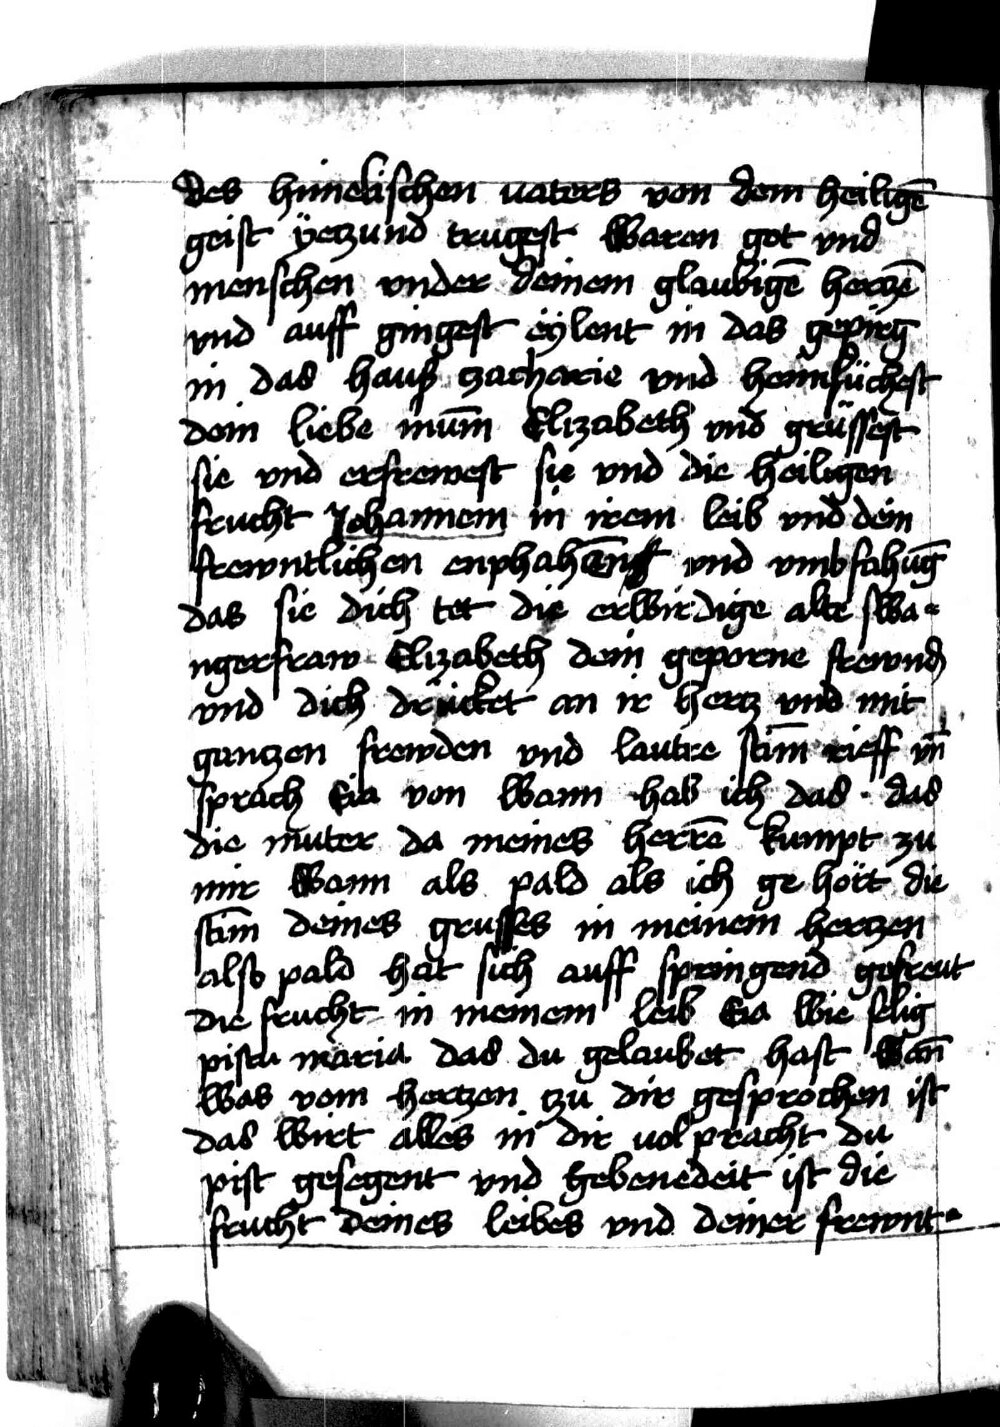 des himelischen vaters von dem heiligē
geist ÿetzund trugest Waren got vnd
menschen vnder deinem glaubigē hertzē
vnd auff gingest eÿlent in das gepirg
in das hauß zacharie vnd heimsüchest
dein liebe mūm Elizabeth vnd grüssest
sie vnd erfrewest sie vnd die heiligen
frucht Johannem in irem leib vnd dein
frewntlichen enphahūng vnd vmbfahūg
das sie dich tet die erwirdige alte swa-
ngerfraw Elizabeth dein geporne frewnd
vnd dich drücket an ir hertz vnd mit
gantzen frewden vnd lautre stim̄ rieff vn̄
sprach Eia von wann hab ich das · das
die muter da meines herrē kumpt zu
mir Wann als pald als ich gehört die
stim̄ deines grusses in meinem hertzen
also pald hat sich auff springend gefreut
die frucht in meinem leib Eia wie selig
pistu maria das du gelaubet hast Wan̄
was vom hertzen zu dir gesprochen ist
das wirt alles in dir volpracht du
pist gesegent vnd gebenedeit ist die
frucht deines leibes vnd deiner frewnt-